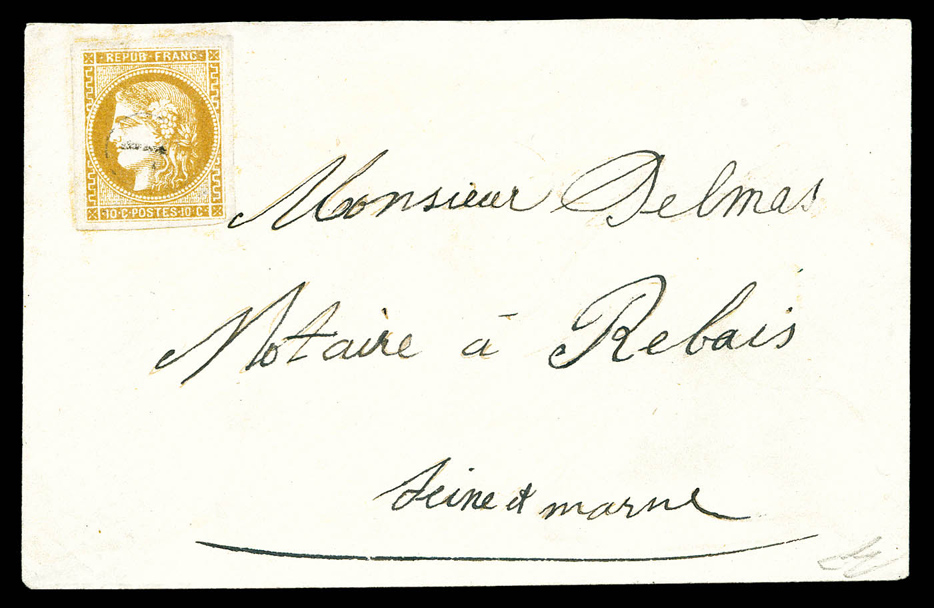 REPUB·FRANC·
10·C·POSTES·10·C·
Monsieur Delmas
Notaire à Rebais
Seine et marne